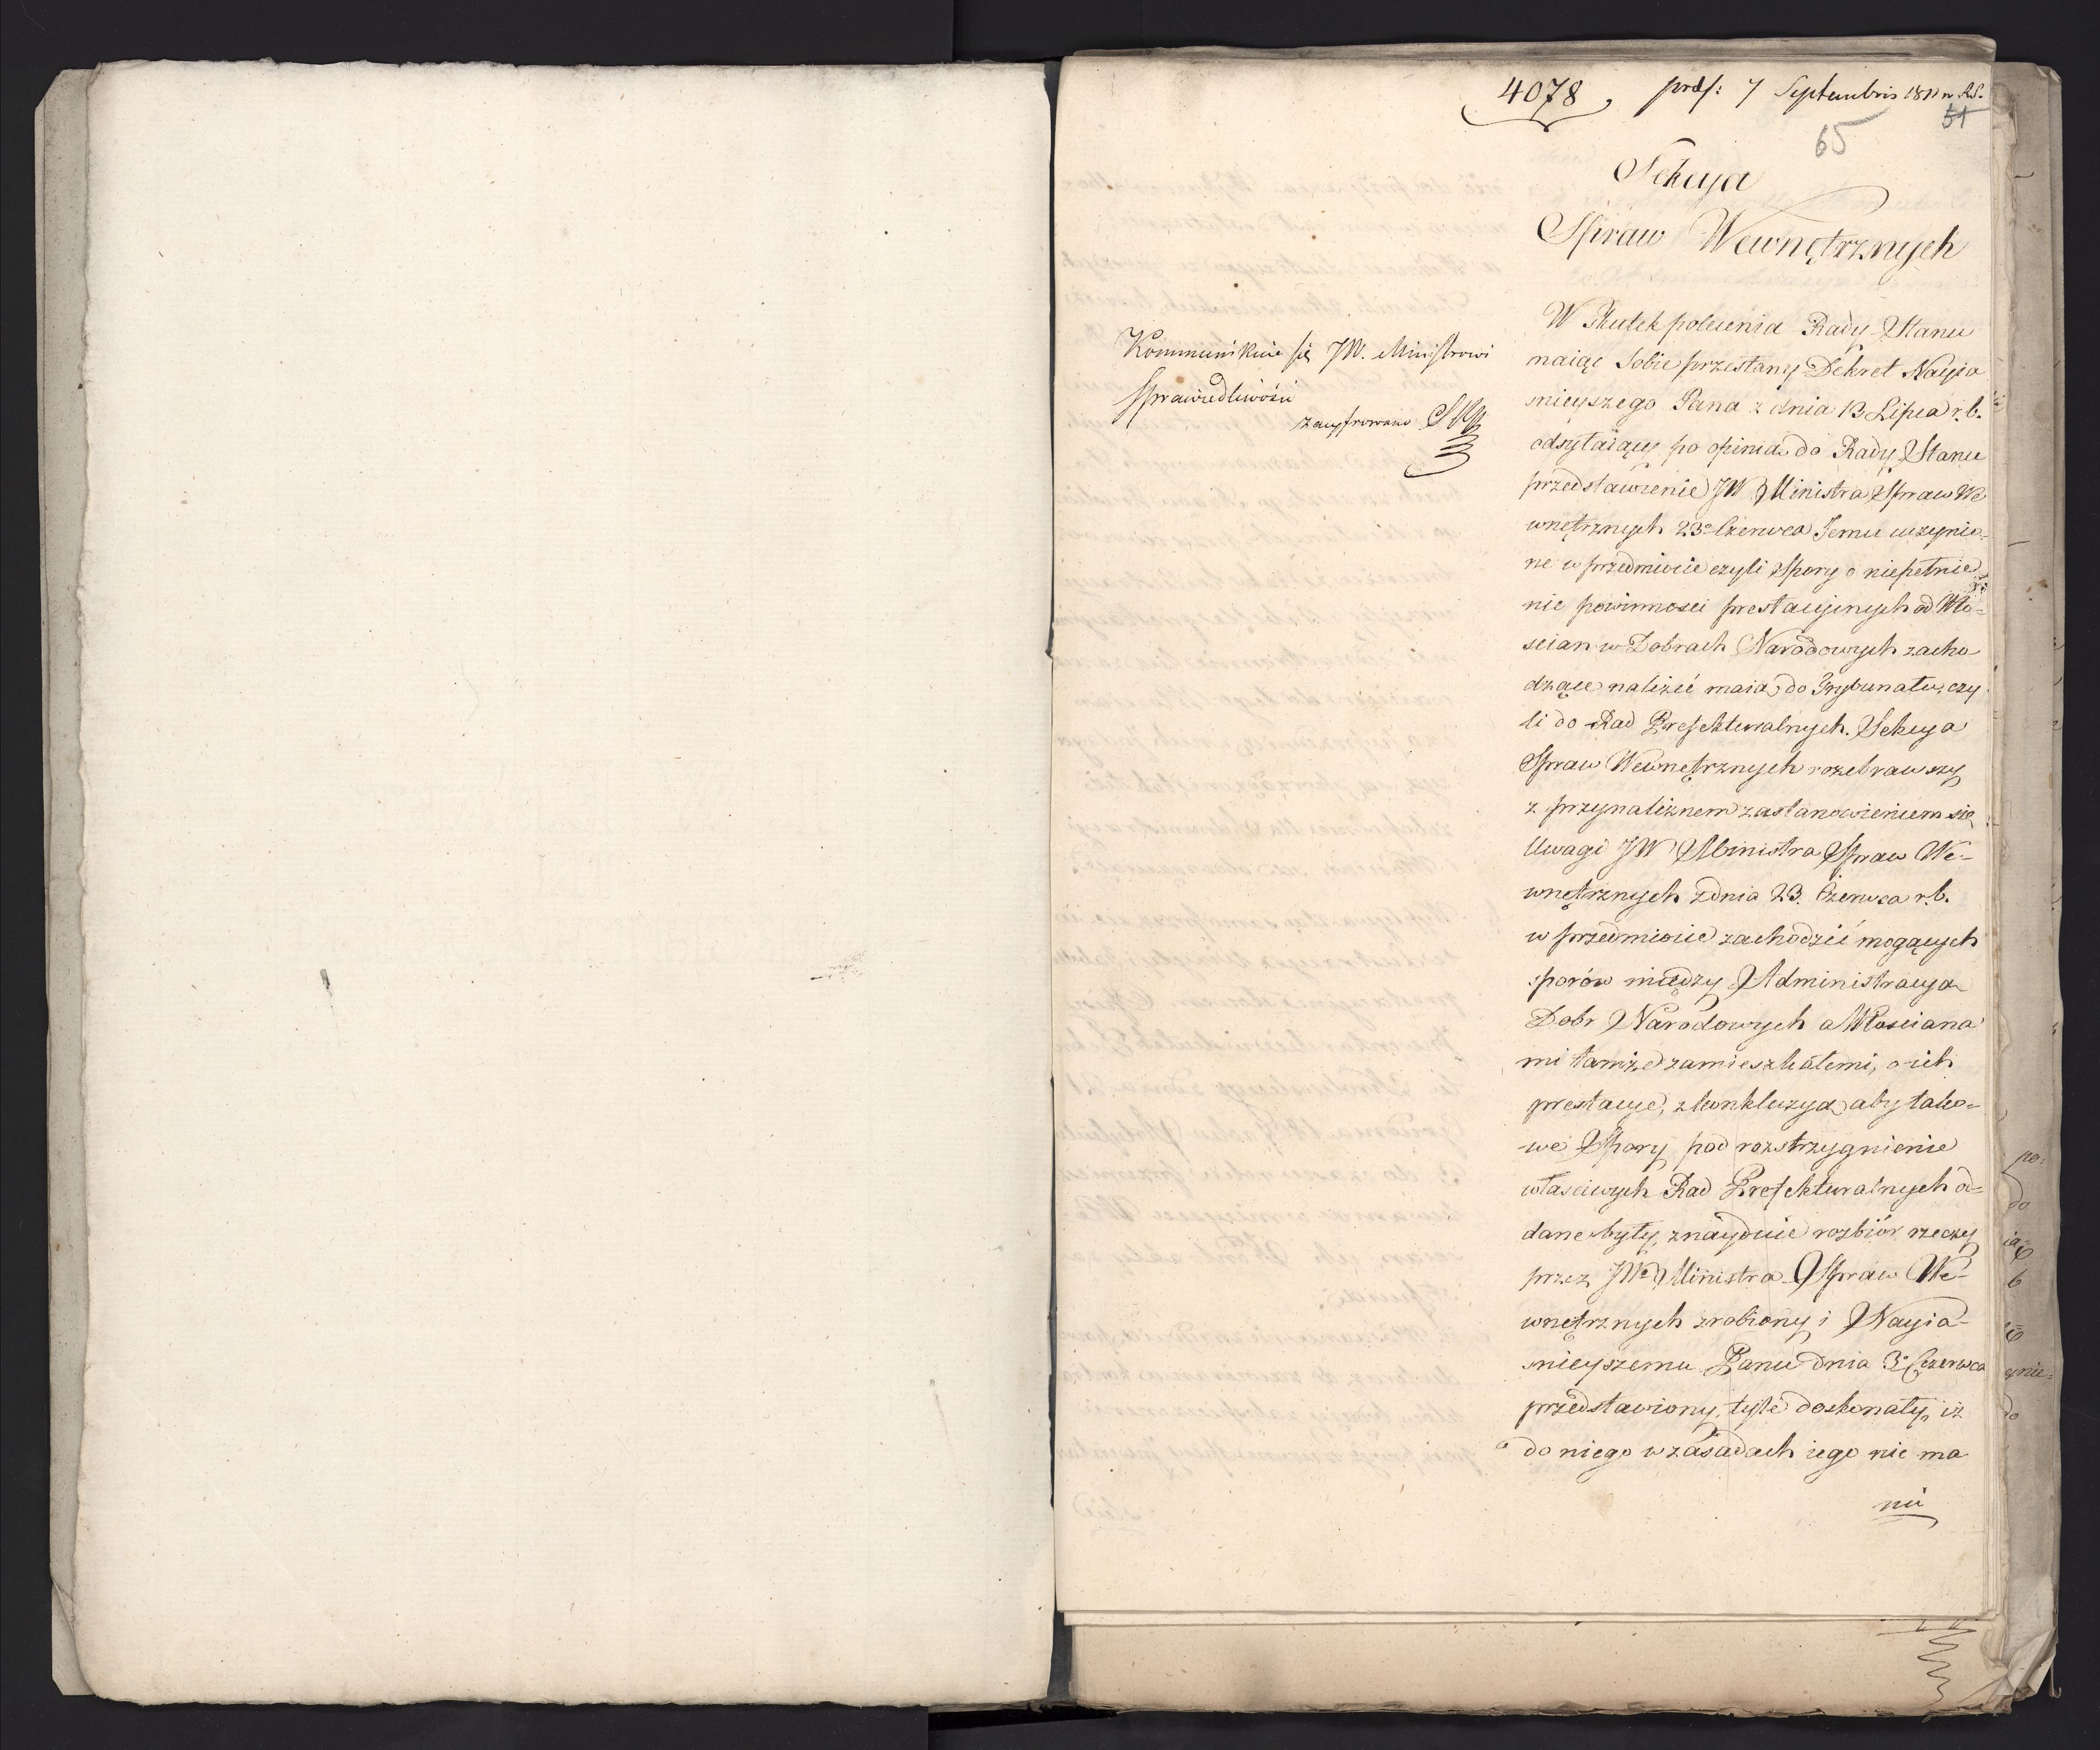 4078 præs: 7 Septembris 1811 n R.S.
51
65
Sekcya
Spraw Wewnętrznych
Kommunikuie się JW. Ministrowi
Sprawiedliwości
zaszyfrowano
W Skutek polecenia Rady Stanu
maiąc Sobie przesłany Dekret Nayia
snieyszego Pana z dnia 13 Lipca r. b.
odsyłaiący po opinią do Rady Stanu
przedstawienie JW Ministra Spraw We
wnętrznych 23o Czerwca Jemu uczynio-
ne w przedmiocie czyli Spory o niepełnie
nie powinnosci prestacyinych od Wło-
scian w Dobrach Narodowych zacho
dzące należeć maią do Trybunału, czy
li do Rad Prefekturalnych. Sekcya
Spraw Wewnętrznych rozebrawszy
z przynależnem zastanowieniem się
Uwagi JW Ministra Spraw We-
wnętrznych z dnia 23. Czerwca r. b.
w przedmiocie zachodzić mogących
sporów między Administracyą
Dobr Narodowych a Włosciana
mi tamże zamieszkałemi, o ich
prestacye, z konkluzyą aby tako-
we Spory pod rozstrzygnienie
własciwych Rad Prefekturalnych od-
dane były, znayduie rozbiór rzeczy
przez JWo Ministra Spraw We-
wnętrznych zrobiony i Nayia-
snieyszemu Panu dnia 3o Czerwca
przedstawiony, tyle doskonały, iż
do niego w zasadach iego nie ma
nic